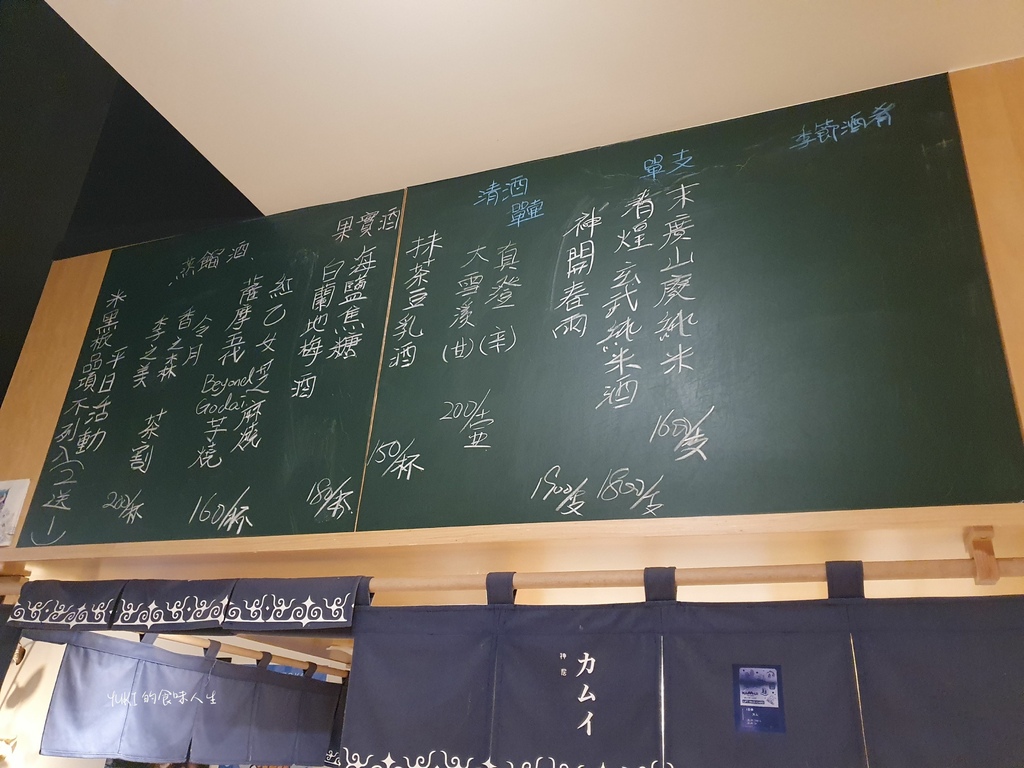 季節酒肴
單支
末廣山廃純米
1600/支
清煌玄武純米酒
1800/支
神開春雨
1900/支
清酒
單壺
真澄(辛)
大雪渓(甘)
200/壺
抹茶豆乳酒
150/杯
果實酒
海鹽焦糖
白蘭地梅酒
180/杯
蒸餾酒
紅乙女芝麻燒
薩摩五代
Beyond
Godai芋燒
160/杯
令月
香之森
季之美
茶割
200/杯
平日活動
※黑板品項不列入(2送1)
カムイ
YUKI的食味人生